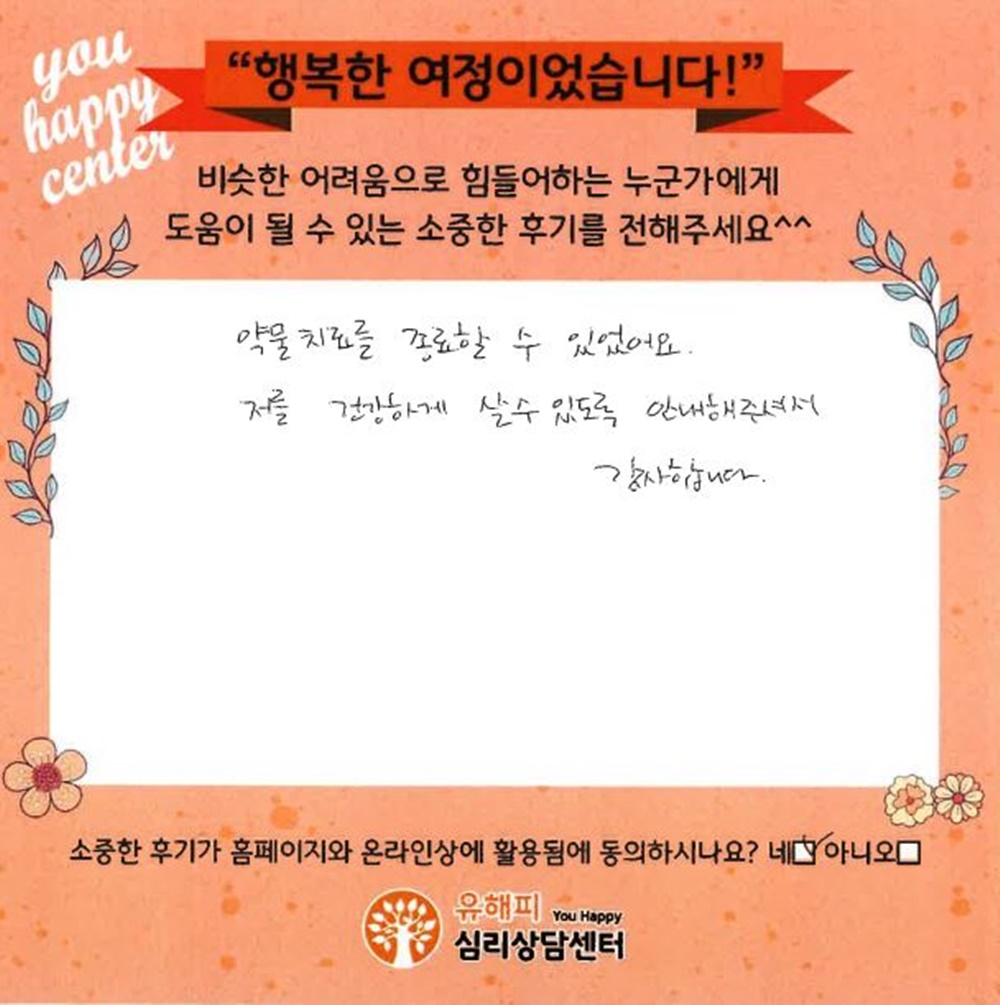 you
happy
center
“행복한 여정이었습니다!”
비슷한 어려움으로 힘들어하는 누군가에게
도움이 될 수 있는 소중한 후기를 전해주세요^^
약물치료를 종료할 수 있었어요.
저를 건강하게 살 수 있도록 안내해주셔서
감사합니다.
소중한 후기가 홈페이지와 온라인상에 활용됨에 동의하시나요? 네☑ 아니오☐
유해피 You Happy
심리상담센터